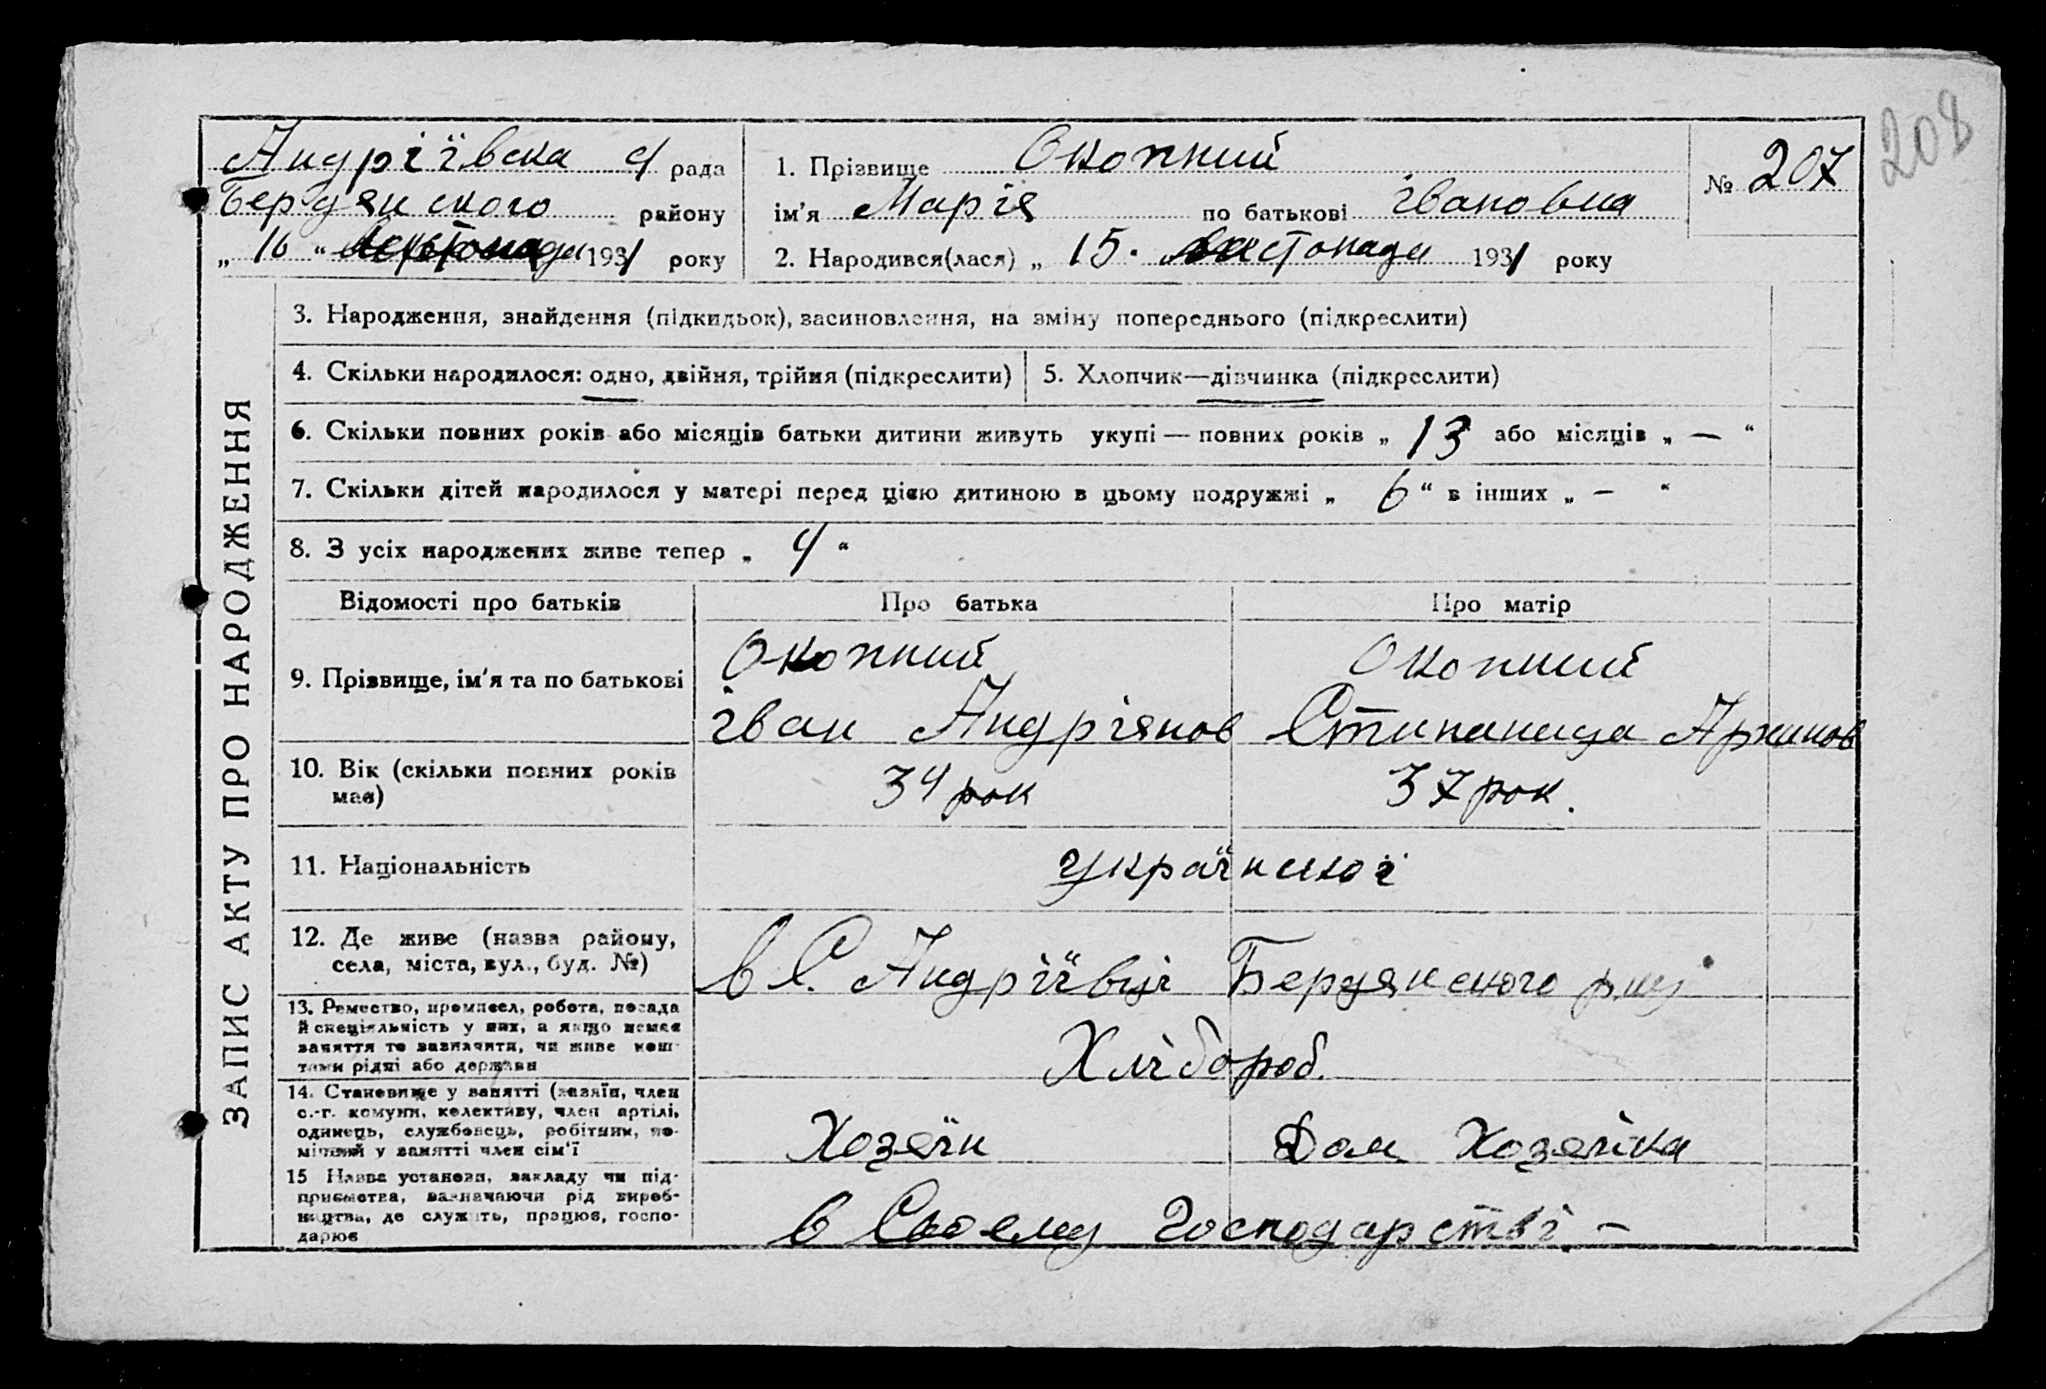 208
Андріївска с/ рада
Бердянського району
„ 16 “ листопада 1931 року
1. Прізвище Окопний
ім'я Марія по батькові Івановна
2. Народився(лася) „ 15. листопада 1931 року
№ 207
ЗАПИС АКТУ ПРО НАРОДЖЕННЯ
3. Народження, знайдення (підкидьок), засиновлення, на зміну попереднього (підкреслити)
4. Скільки народилося: одно, двійня, трійня (підкреслити)
5. Хлопчик—дівчинка (підкреслити)
6. Скільки повних років або місяців батьки дитини живуть укупі — повних років „ 13 або місяців „ — “
7. Скільки дітей народилося у матері перед цією дитиною в цьому подружжі „ 6 “ в інших „ — “
8. З усіх народжених живе тепер „ 4 “
Відомості про батьків Про батька Про матір
9. Прізвище, ім'я та по батькові
Окопний
Іван Андріянов
Окопний
Стипанида Архипов
10. Вік (скільки повних років
має)
34 рок
37 рок.
11. Національність
Української
12. Де живе (назва району,
села, міста, вул., буд. №)
в С. Андріївці Бердянського р-ну
13. Ремество, промисел, робота, посада
й спеціяльність у них, а якщо немає
заняття то зазначити, чи живе кош-
тами рідні або держави
Хлібороб.
14. Становище у занятті (хазяїн, член
с.-г. комуни, колективу, член артілі,
одинець, службовець, робітник, по-
мічний у занятті член сім'ї
Хозяїн
Дом Хозяйка
15 Назва установи, закладу чи під-
приємства, зазначаючи рід вироб-
ництва, де служить, працює, госпо-
дарює
в Своему Господарстві. —